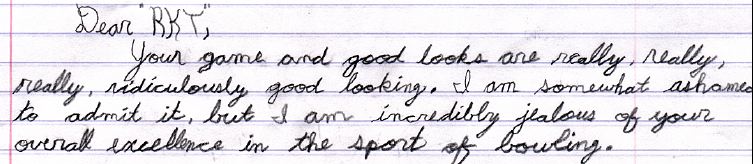 Dear "RKT",
Your game and good looks are really, really,
really, ridiculously good looking. I am somewhat ashamed
to admit it, but I am incredibly jealous of your
overall excellence in the sport of bowling.